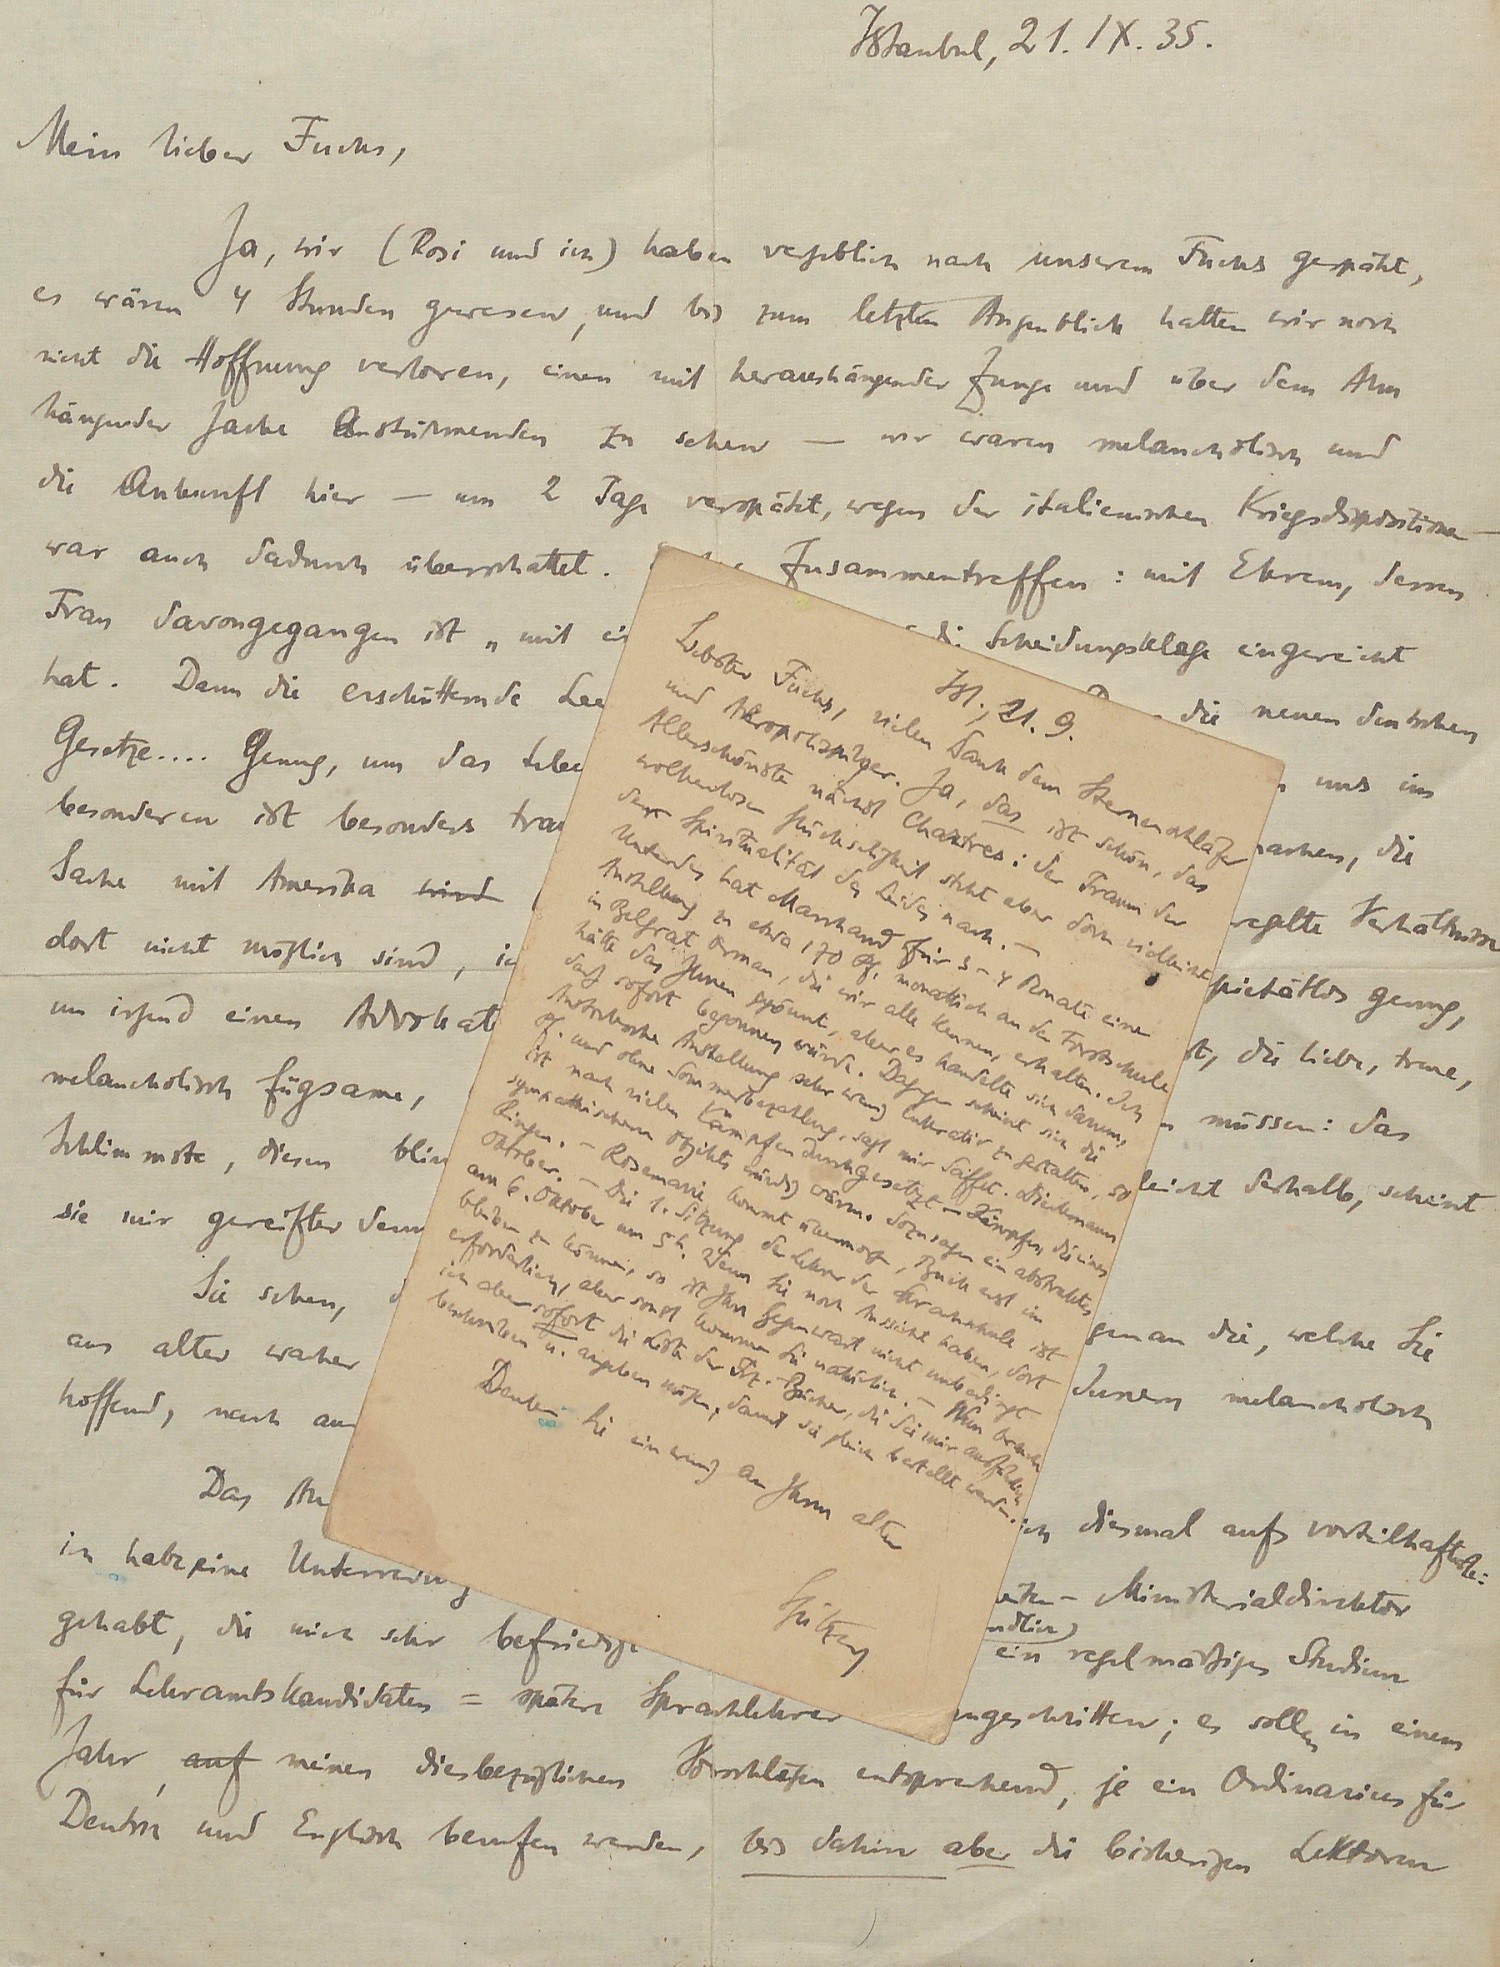 Istanbul, 21. IX. 35.
Mein lieber Fuchs,
Ja, wir (Rosi und ich) haben vergeblich nach unserem Fuchs gespäht,
es wären 4 Stunden gewesen, und bis zum letzten Augenblick hatten wir noch
nicht die Hoffnung verloren, einen mit heraushängender Zunge und über dem Arm
hängender Jacke Anstürmenden zu sehen — wir waren melancholisch und
die Ankunft hier — um 2 Tage verspätet, wegen der italienischen Kriegsdispositionen —
war auch dadurch überschattet. Zusammentreffen: mit Ekrem, dessen
Frau davongegangen ist „mit die Scheidungsklage eingereicht
hat. Dann die erschütternde die neuen deutschen
Gesetze.... Genug, um das uns im
besonderen ist besonders die
Sache mit Amerika wird Verhältnisse
dort nicht möglich sind, pietätlos genug,
um irgend einen die liebe, treue,
melancholisch fügsame, müssen: das
Schlimmste, dieses deshalb, scheint
sie mir gereifter denn
Sie sehen, genau die, welche Sie
aus alter wacher Innern melancholisch
hoffend, nach
Das diesmal aufs vorteilhafteste:
ich habe eine Unterredung Ministerialdirektor
gehabt, die mich sehr ein regelmäßiges Studium
für Lehramtskandidaten = spätere Sprachlehrer eingeschritten; es sollen in einem
Jahr, auf meinen diesbezüglichen Vorschlägen entsprechend, je ein Ordinarius für
Deutsch und Englisch berufen werden, bis dahin aber die bisherigen Lektoren
Ist., 21. 9.
Liebster Fuchs, vielen Dank dem Sternenschläfer
und Akropolispilger. Ja, das ist schön, das
Allerschönste nächst Chartres: der Traum der
wolkenlosen Glückseligkeit steht aber doch vielleicht
der Spiritualität des Leides nach. —
Unterdes hat Marchand für 3–4 Monate eine
Anstellung zu etwa 170 monatlich an der Forstschule
in Belgrat Orman, die wir alle kennen, erhalten. Ich
hätte das Ihnen gegönnt, aber es handelte sich darum,
daß sofort begonnen würde. Dagegen scheint sich die
Anstellung sehr wenig lukrativ zu gestalten, so
und ohne Sommerbezahlung, sagt mir Saffet. Dieckmann
ist nach vielen Kämpfen durchgesetzt — Kämpfen, die eines
sympathischeren Objekts würdig wären. Sozusagen ein abstraktes
Ringen. — Rosemarie kommt übermorg., Buck erst im
Oktober. — Die 1. Sitzung der Lehrer der Sprachschule ist
am 6. Oktober um 5h. Wenn Sie noch Aussicht haben, dort
bleiben zu können, so ist Ihre Gegenwart nicht unbedingt
erforderlich, aber sonst kommen Sie natürlich. — Nun brauche
ich aber sofort die Liste der Bücher, die Sie mir ausführlich
beschreiben u. angeben müssen, damit sie gleich bestellt werden.
Denken Sie ein wenig an Ihren alten
Spitzer